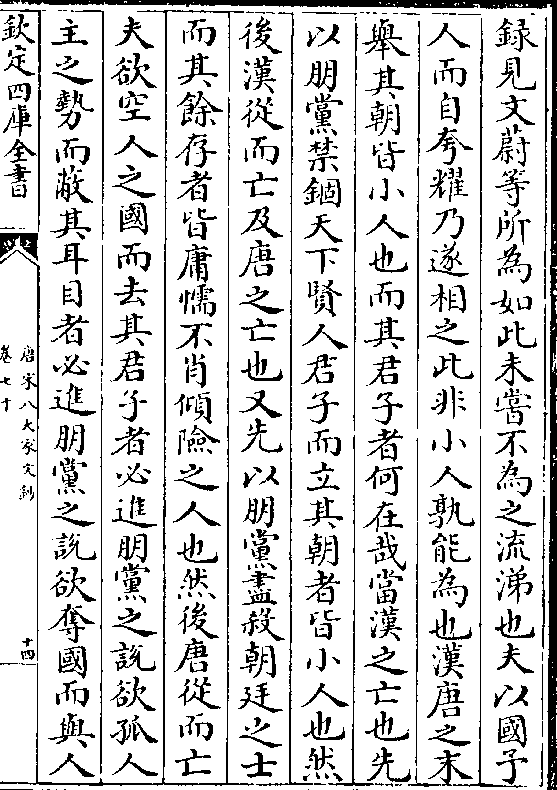 録見文蔚等所為如此未嘗不為之流涕也夫以國予
人而自夸耀乃遂相之此非小人孰能為也漢唐之末
舉其朝皆小人也而其君子者何在哉當漢之亡也先
以朋黨禁錮天下賢人君子而立其朝者皆小人也然
後漢從而亡及唐之亡也又先以朋黨盡殺朝廷之士
而其餘存者皆庸懦不肖傾險之人也然後唐從而亡
夫欲空人之國而去其君子者必進朋黨之說欲孤人
主之勢而蔽其耳目者必進朋黨之說欲奪國而與人
欽定四庫全書
唐宋八大家文鈔
卷七十
十四